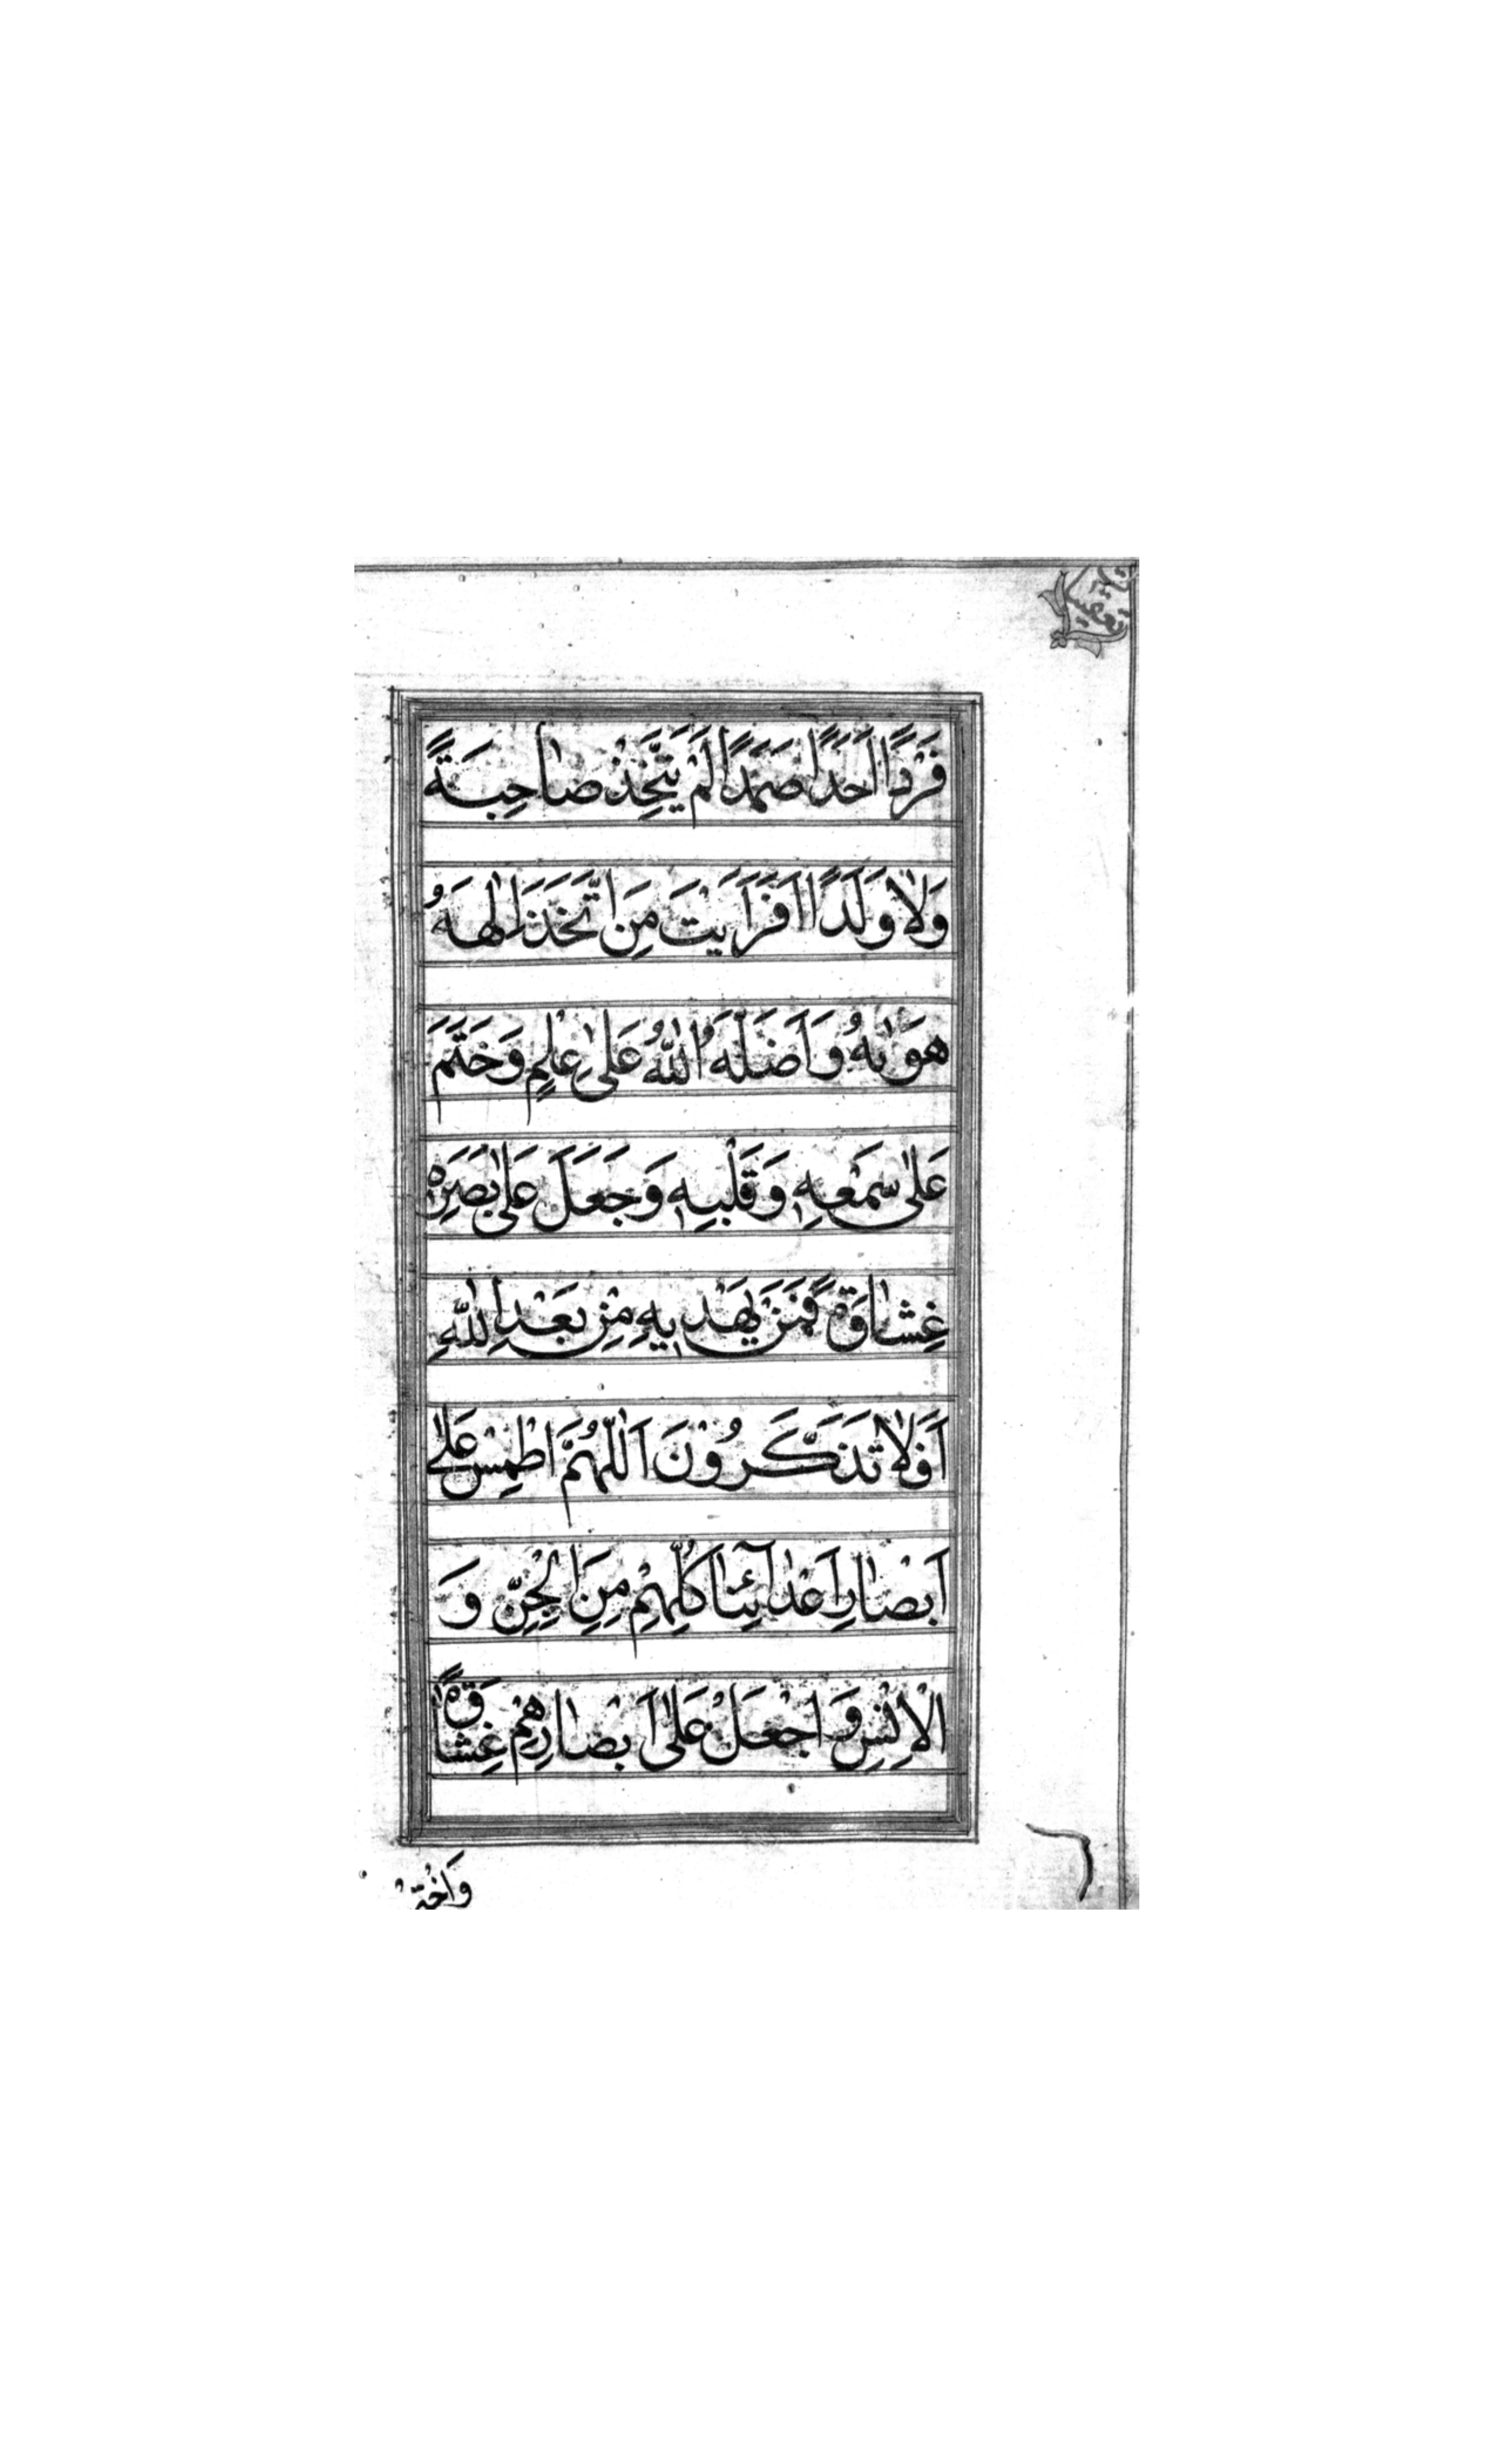 فَرْدًا اَحَدًا صَمَدًا لَمْ يَتَّخِذْ صَاحِبَةً
وَلَا وَلَدًا اَفَرَاَيْتَ مَنِ اتَّخَذَ اِلٰهَهُ
هَوٰيهُ وَاَضَلَّهُ اللّٰهُ عَلٰى عِلْمٍ وَخَتَمَ
عَلٰى سَمْعِهٖ وَقَلْبِهٖ وَجَعَلَ عَلٰى بَصَرِهٖ
غِشَاوَةً فَمَنْ يَهْدِيهِ مِنْ بَعْدِ اللّٰهِ
اَفَلَا تَذَكَّرُوْنَ اَللّٰهُمَّ اطْمِسْ عَلٰى
اَبْصَارِ اَعْدَآئِنَا كُلِّهِمْ مِنَ الْجِنِّ وَ
الْاِنْسِ وَاجْعَلْ عَلٰى اَبْصَارِهِمْ غِشَاوَةً